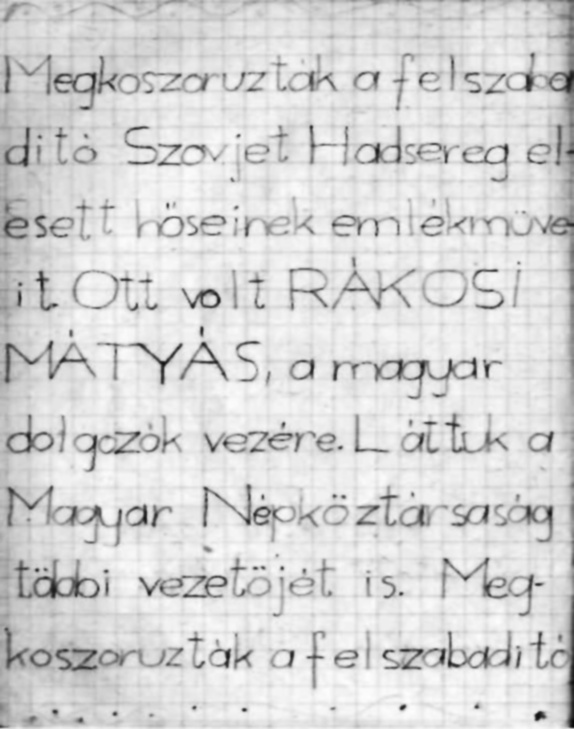 Megkoszoruzták a felszaba
ditó Szovjet Hadsereg el-
esett hőseinek emlékmüve-
it. Ott volt RÁKOSI
MÁTYÁS, a magyar
dolgozók vezére. Láttuk a
Magyar Népköztársaság
többi vezetőjét is. Meg-
koszoruzták a felszabaditó